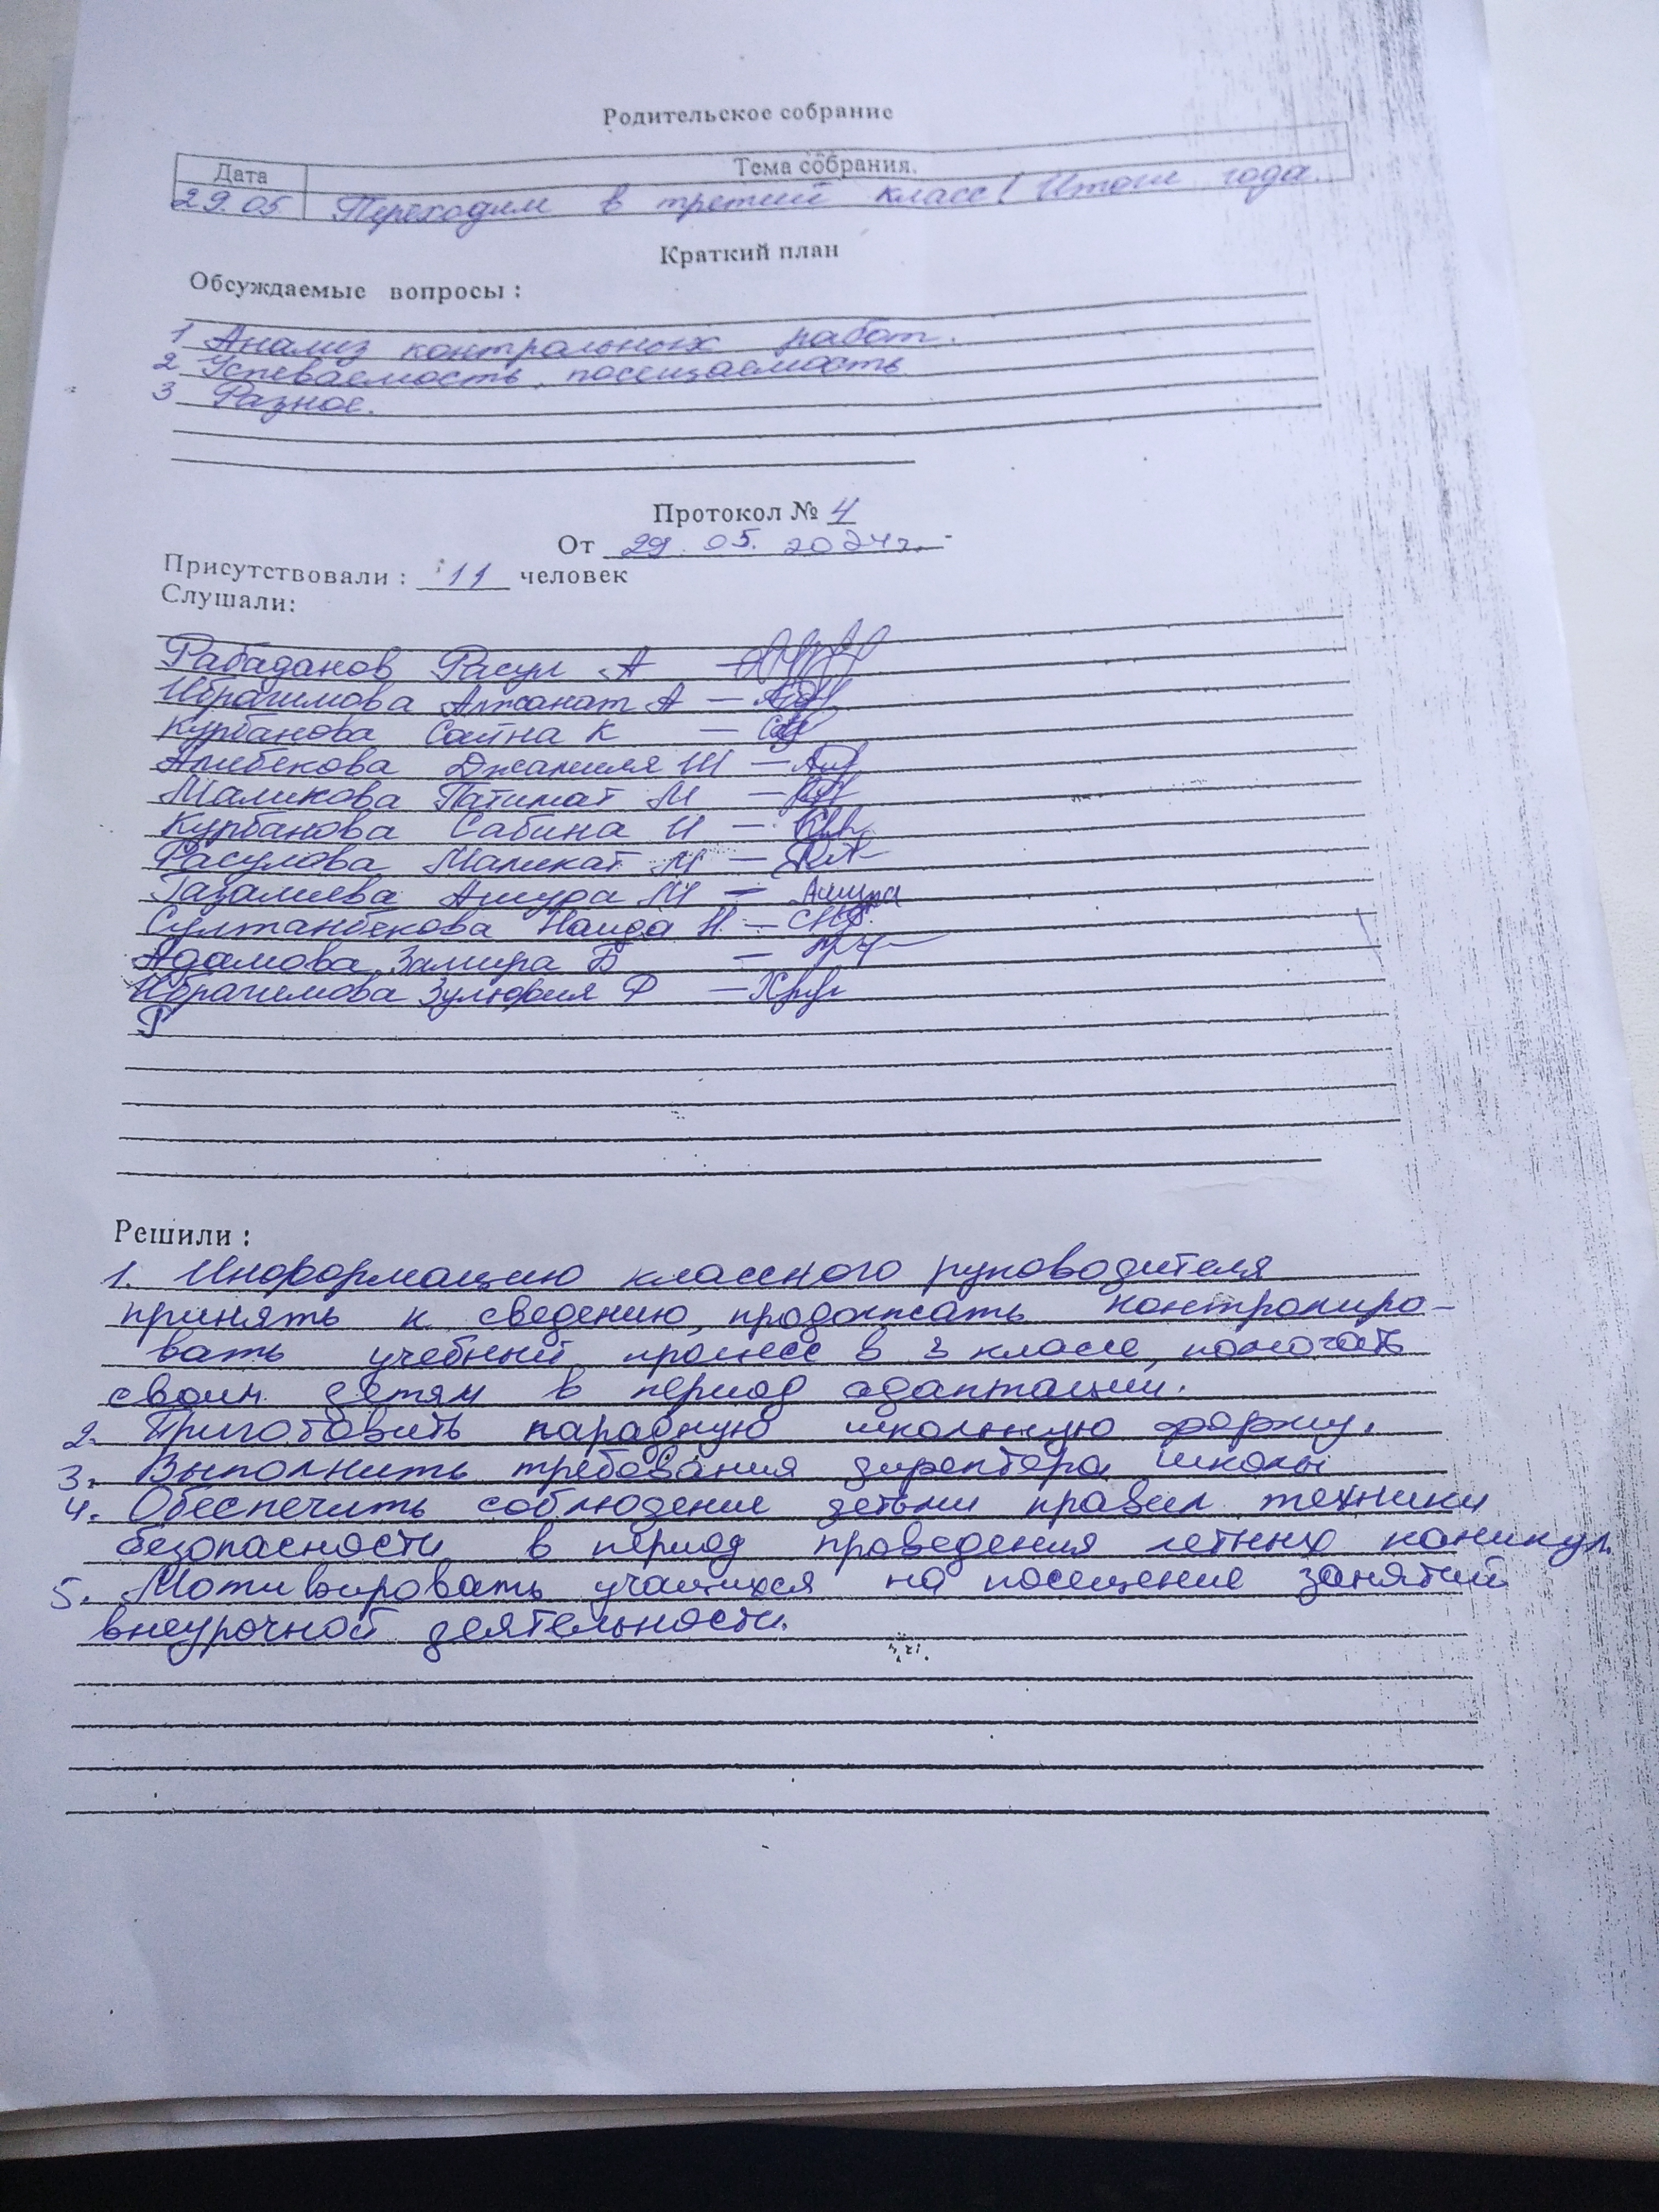 Родительское собрание
Дата Тема собрания.
29.05 Переходим в третий класс! Итоги года.
Краткий план
Обсуждаемые вопросы :
1 Анализ контрольных работ.
2 Успеваемость, посещаемость
3 Разное.
Протокол № 4
От 29.05.2024г.
Присутствовали : 11 человек
Слушали:
Рабаданов Расул А
Ибрагимова Аминат А —
Курбанова К —
Алибекова Джамиля Ш —
Маликова Патимат М —
Курбанова Сабина И —
Расулова Маликат М —
Газалиева Ашура М — Ашура
Султанбекова Наида Н. —
Адамова Замира Б —
Ибрагимова Зульфия Ф —
Г
Решили :
1. Информацию классного руководителя
принять к сведению, продолжать контролиро-
вать учебный процесс в 3 классе, помогать
своим детям в период адаптации.
2. Приготовить парадную школьную форму.
3. Выполнить требования директора школы
4. Обеспечить соблюдение детьми правил техники
безопасности в период проведения летних каникул.
5. Мотивировать учащихся на посещение занятий
внеурочной деятельности.